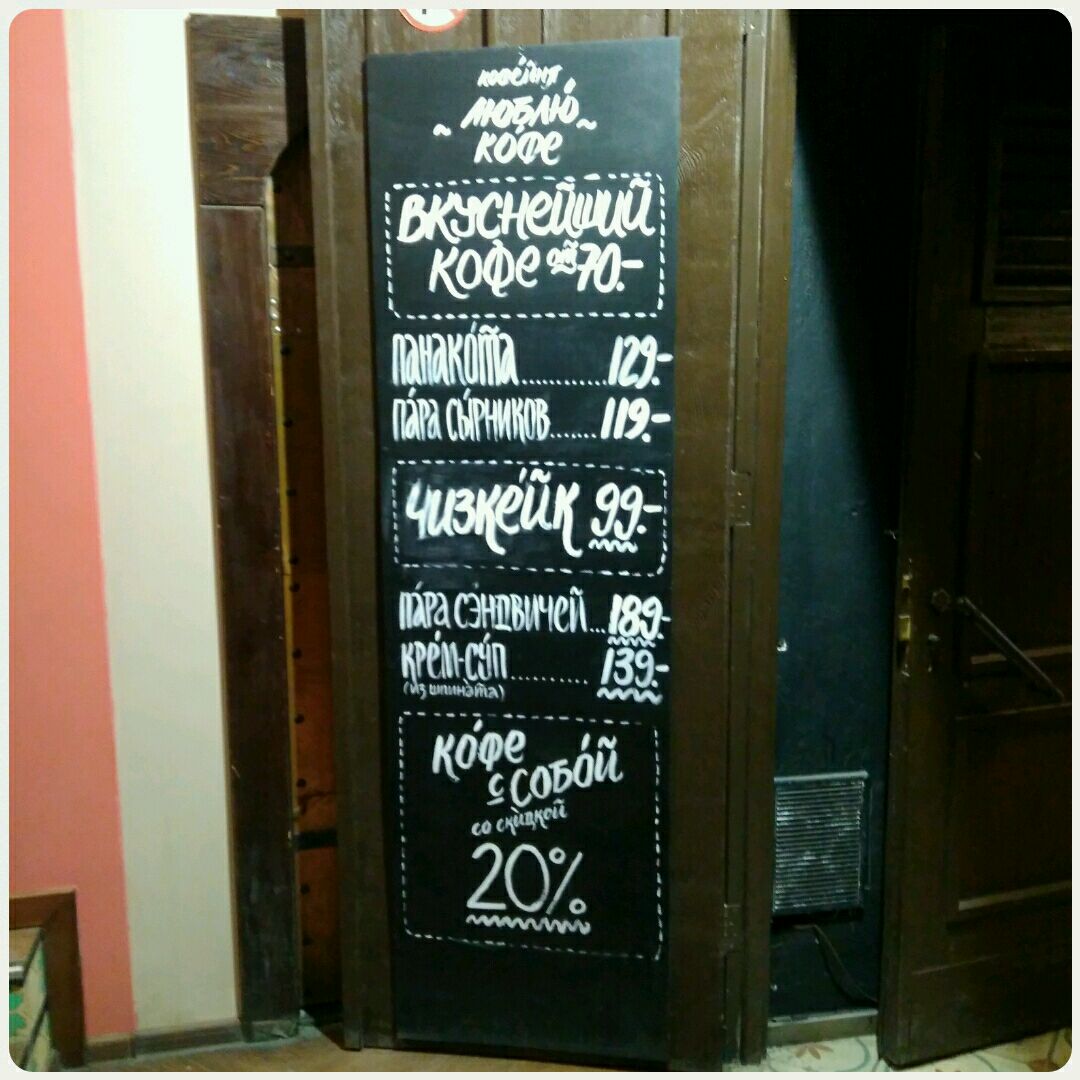 кофейня
~ люблю́ ~
ко́фе
вкуснейший
кофе от 70.-
панако́та............129.-
па́ра сы́рников.......119.-
чизке́йк 99.-
па́ра сэ́ндвичей...189.-
кре́м-су́п..........139.-
(из шпина́та)
ко́фе
с собо́й
со ски́дкой
20%